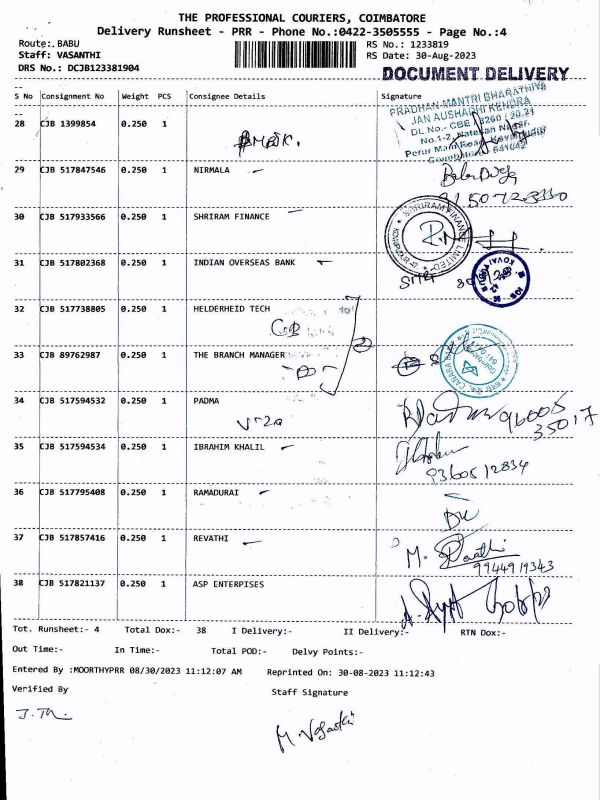 THE PROFESSIONAL COURIERS, COIMBATORE
Delivery Runsheet - PRR - Phone No.:0422-3505555 - Page No.:4
Route:.BABU RS No.: 1233819
Staff: VASANTHI RS Date: 30-Aug-2023
DRS No.: DCJB123381904 DOCUMENT DELIVERY
S No Consignment No Weight PCS Consignee Details Signature
PRADHAN MANTRI BHARATHIYA
JAN AUSHADHI KENDRA
28 CJB 1399854 0.250 1
29 CJB 517847546 0.250 1 NIRMALA
30 CJB 517933566 0.250 1 SHRIRAM FINANCE
SHRIRAM FINANCE LIMITED
31 CJB 517802368 0.250 1 INDIAN OVERSEAS BANK
32 CJB 517738805 0.250 1 HELDERHEID TECH
33 CJB 89762987 0.250 1 THE BRANCH MANAGER
34 CJB 517594532 0.250 1 PADMA
96005
35017
35 CJB 517594534 0.250 1 IBRAHIM KHALIL
9360512834
36 CJB 517795408 0.250 1 RAMADURAI
37 CJB 517857416 0.250 1 REVATHI
9944919343
38 CJB 517821137 0.250 1 ASP ENTERPISES
Tot. Runsheet:- 4 Total Dox:- 38 I Delivery:- II Delivery:- RTN Dox:-
Out Time:- In Time:- Total POD:- Delvy Points:-
Entered By :MOORTHYPRR 08/30/2023 11:12:07 AM Reprinted On: 30-08-2023 11:12:43
Verified By Staff Signature